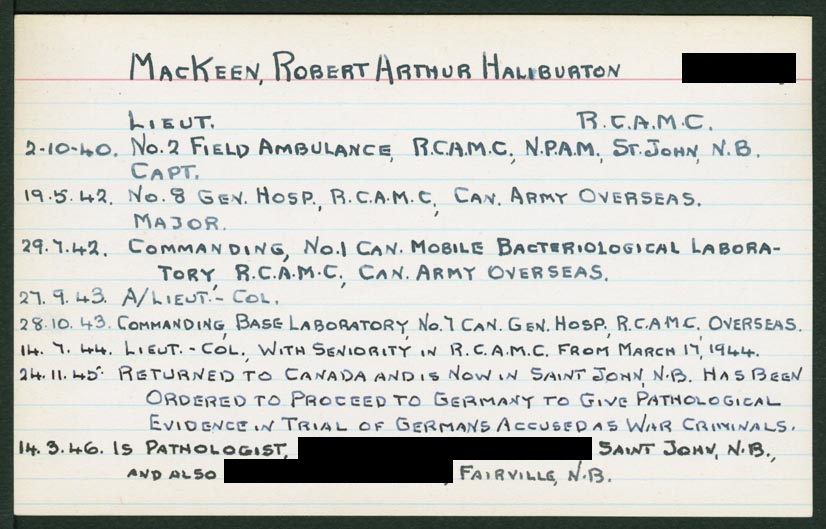 MacKeen, Robert Arthur Haliburton
Lieut. R.C.A.M.C.
2-10-40. No. 2 Field Ambulance, R.C.A.M.C., N.P.A.M., St. John, N.B.
Capt.
19.5.42. No. 8 Gen. Hosp., R.C.A.M.C., Can. Army Overseas.
Major.
29.7.42. Commanding, No. 1 Can. Mobile Bacteriological Labora-
tory, R.C.A.M.C., Can. Army Overseas.
27.9.43. A/Lieut.-Col.
28.10.43. Commanding, Base Laboratory, No. 7 Can. Gen. Hosp., R.C.A.M.C. Overseas.
14.7.44. Lieut.-Col., with Seniority in R.C.A.M.C. from March 17, 1944.
24.11.45. Returned to Canada and is now in Saint John, N.B. Has been
ordered to proceed to Germany to give Pathological
Evidence in Trial of Germans Accused as War Criminals.
14.3.46. Is Pathologist, Saint John, N.B.,
and also , Fairville, N.B.